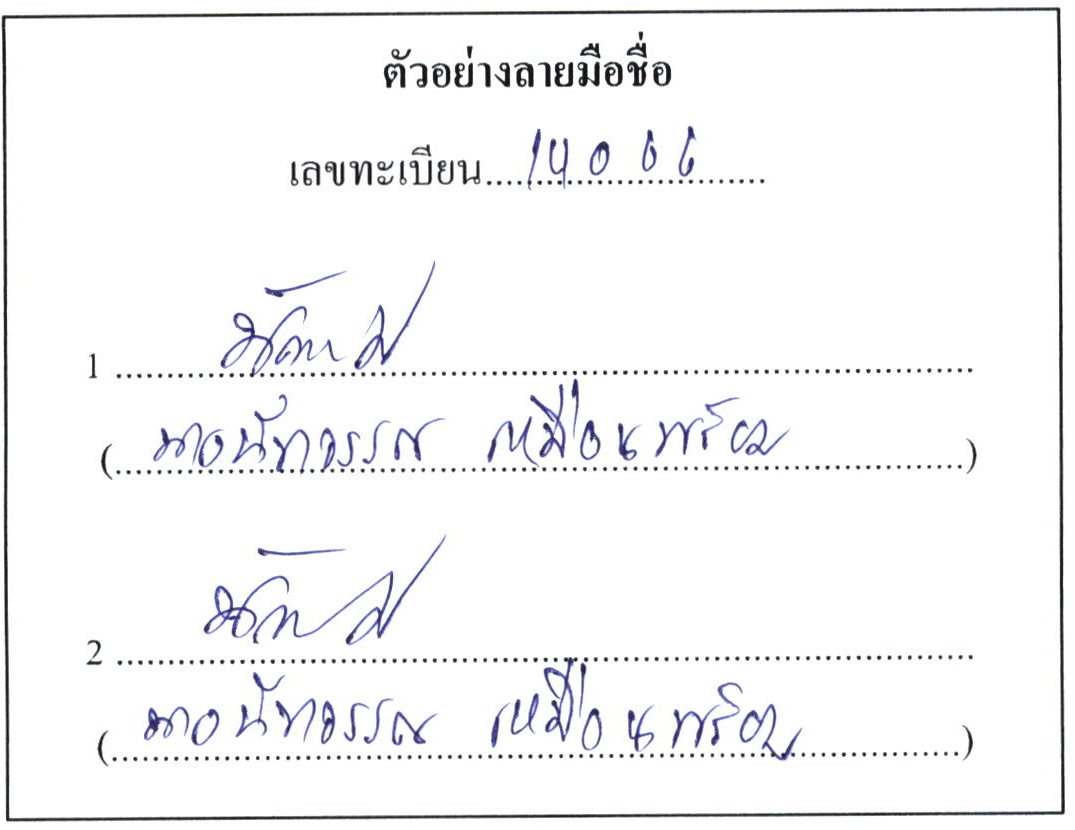 ตัวอย่างลายมือชื่อ
เลขทะเบียน 14066
1
(นางนัทวรรณ เหมือนพร้อม)
2
(นางนัทวรรณ เหมือนพร้อม)